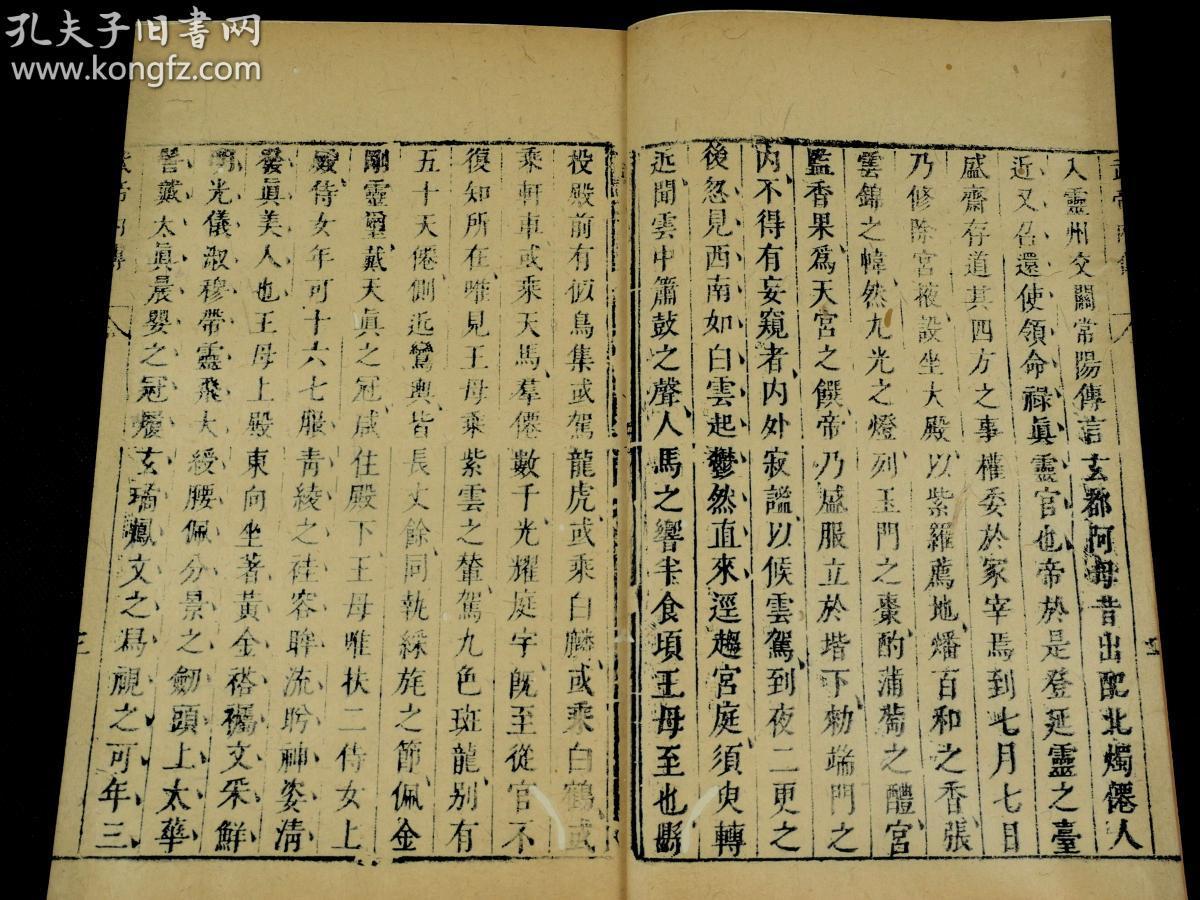 孔夫子旧书网
www.kongfz.com
入靈州交關常陽傳言玄都阿母昔出配北燭僊人
近又召還使領命祿眞靈官也帝於是登延靈之臺
盛齋存道其四方之事權委於冢宰焉到七月七日
乃修除宮掖設坐大殿以紫羅薦地燔百和之香張
雲錦之幃然九光之燈列玉門之棗酌蒲萄之醴宮
監香果爲天宮之饌帝乃盛服立於堦下勑端門之
內不得有妄窺者內外寂謐以候雲駕到夜二更之
後忽見西南如白雲起鬱然直來逕趨宮庭須臾轉
近聞雲中簫鼓之聲人馬之響半食頃王母至也縣
投殿前有似鳥集或駕龍虎或乘白麟或乘白鶴或
乘軒車或乘天馬羣僊數千光耀庭宇旣至從官不
復知所在唯見王母乘紫雲之輦駕九色斑龍別有
五十天僊側近鸞輿皆長丈餘同執綵旄之節佩金
剛靈璽戴天眞之冠咸住殿下王母唯扶二侍女上
殿侍女年可十六七服靑綾之袿容眸流盼神姿淸
發眞美人也王母上殿東向坐著黃金褡襡文采鮮
明光儀淑穆帶靈飛大綬腰佩分景之劒頭上太華
髻戴太眞晨嬰之冠履玄璚鳳文之舄視之可年三
三